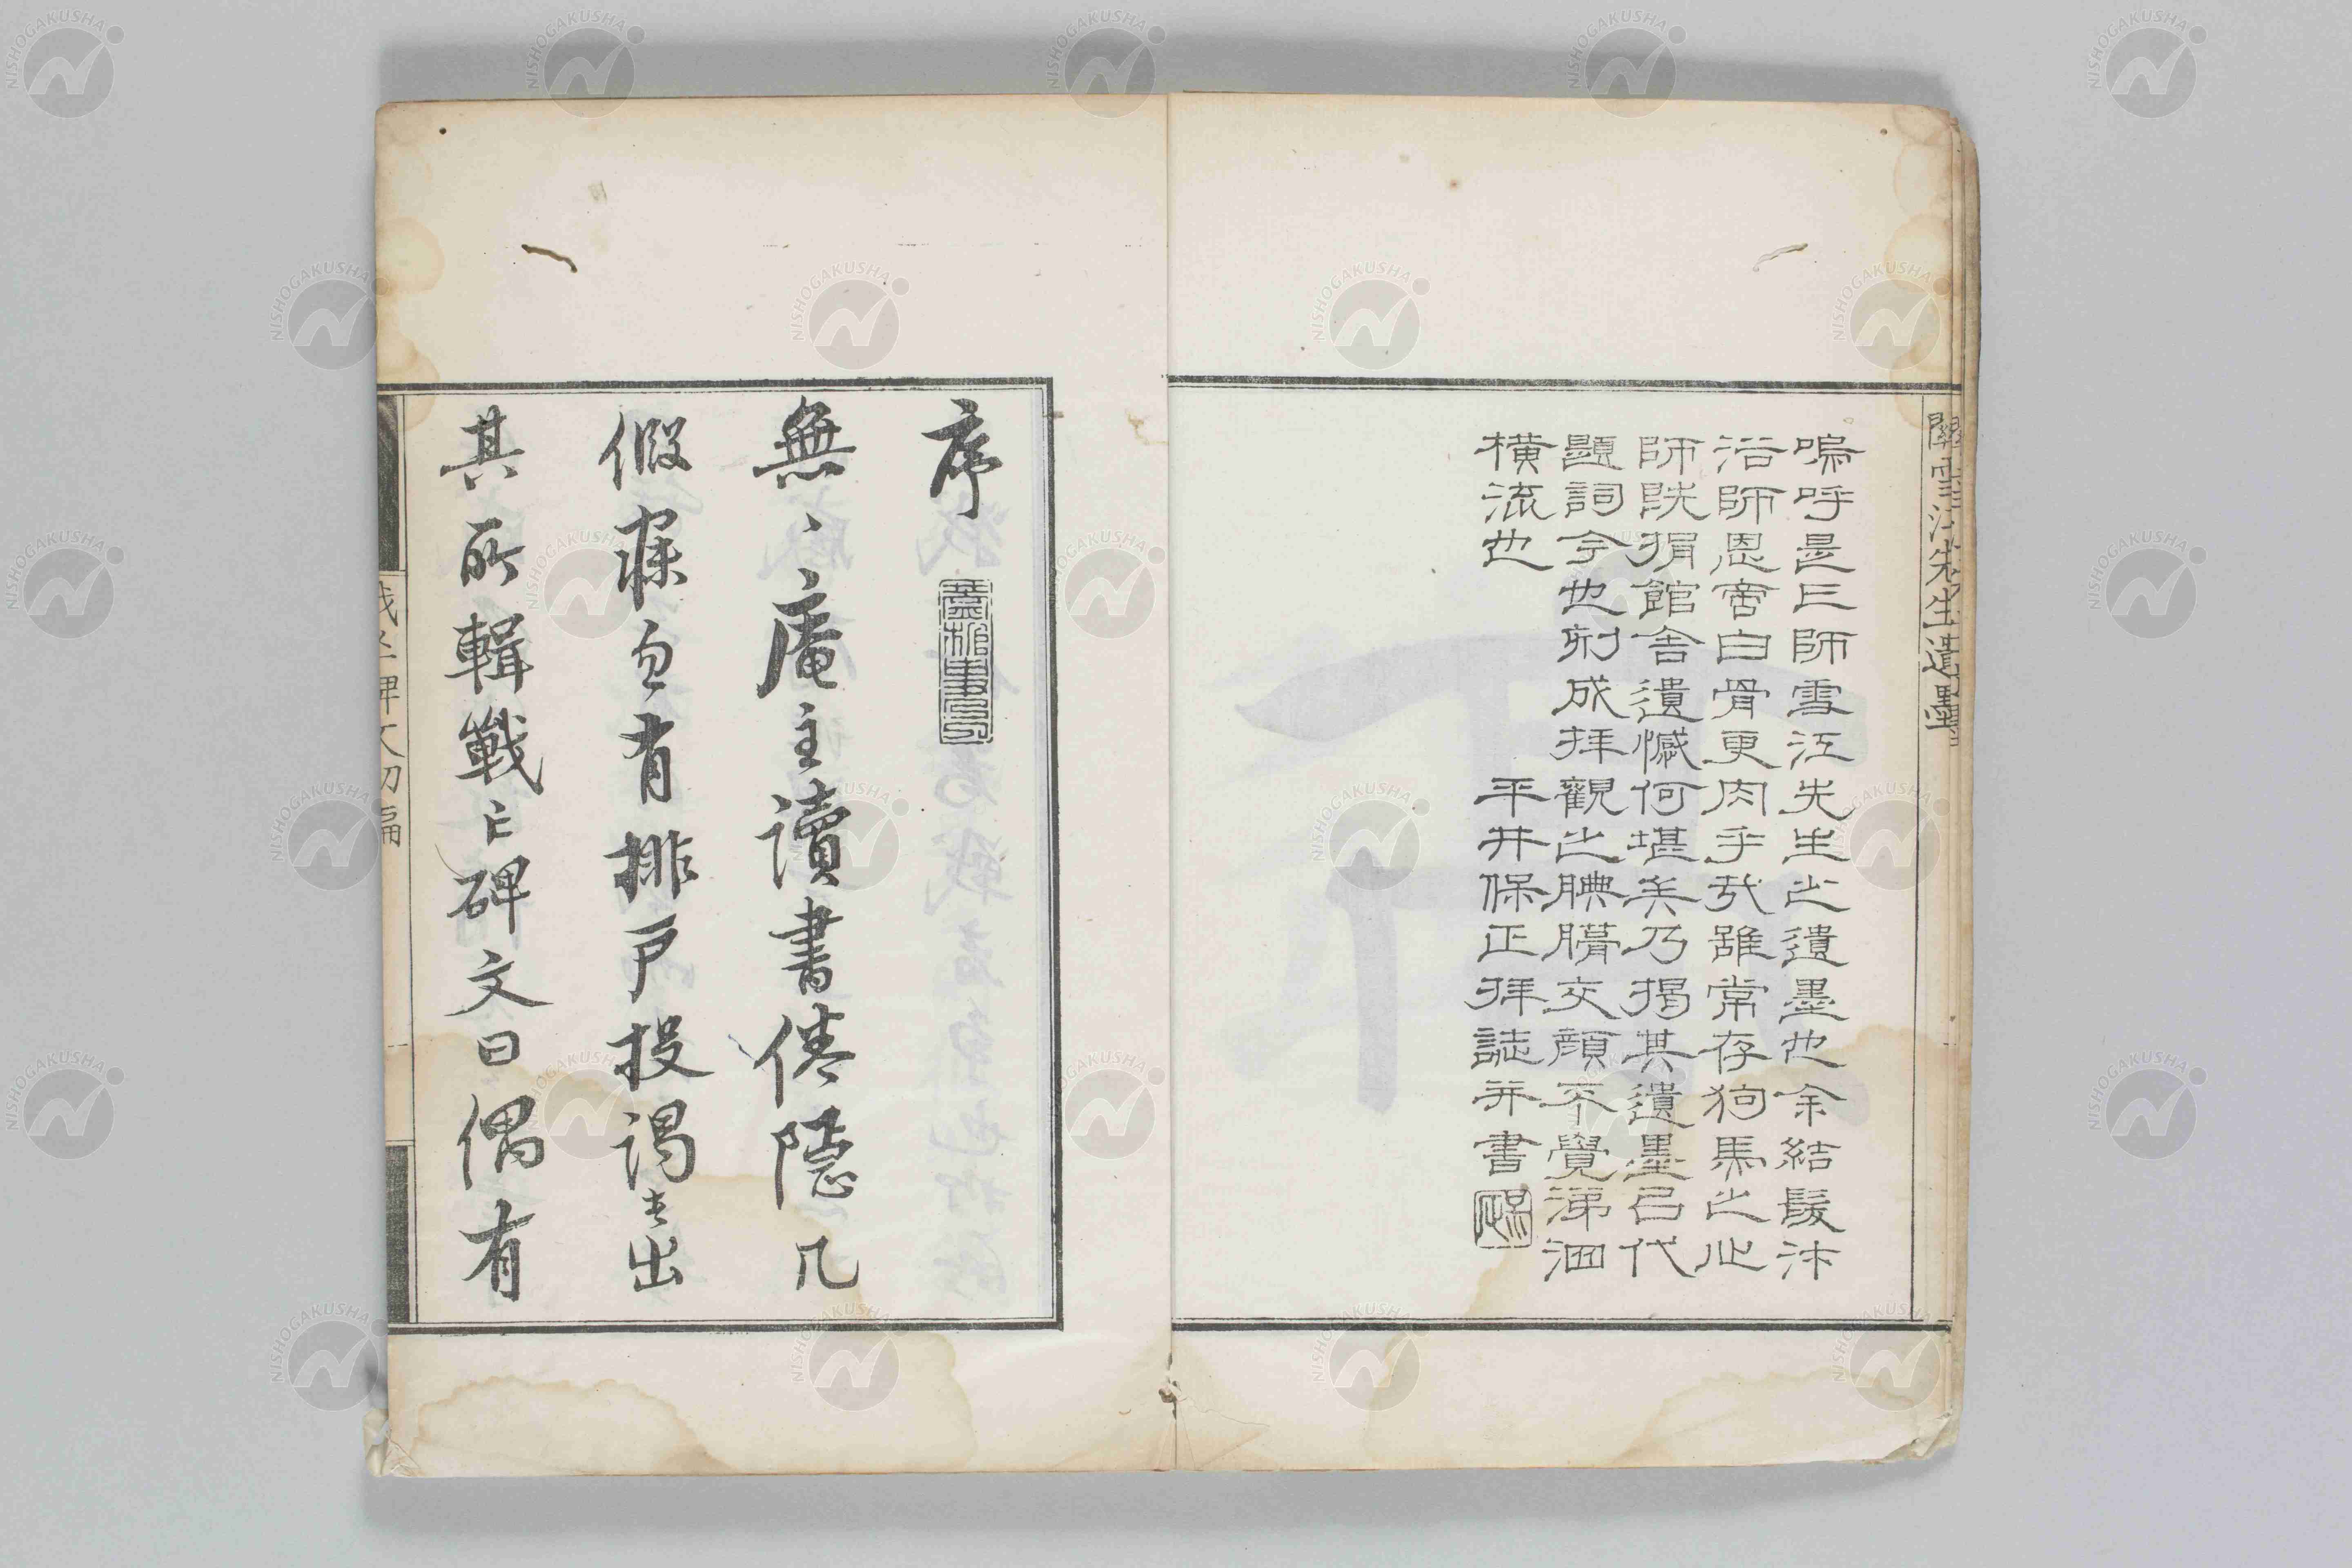 關雪江先生遺墨
嗚呼是亡師雪江先生之遺墨也余結髮沐
浴師恩啻白骨更肉乎哉雖常存狗馬之心
師既捐館舍遺憾何堪矣乃揭其遺墨㠯代
題詞今也刻成拝觀之腆膺交顏不覺涕泗
橫流也
平井保正拝誌并書
序
無、庵主讀書倦隱几
假寐忽有排戶投謁者出
其所輯戰亡碑文曰偶有
戰亡碑文初編
NISHOGAKUSHA